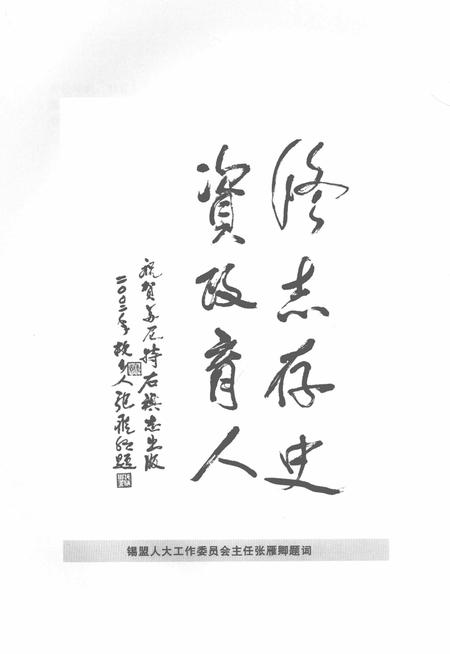 修志存史
資政育人
祝贺苏尼特右旗志出版
二〇〇二年秋
人张雁卿题
锡盟人大工作委员会主任张雁卿题词